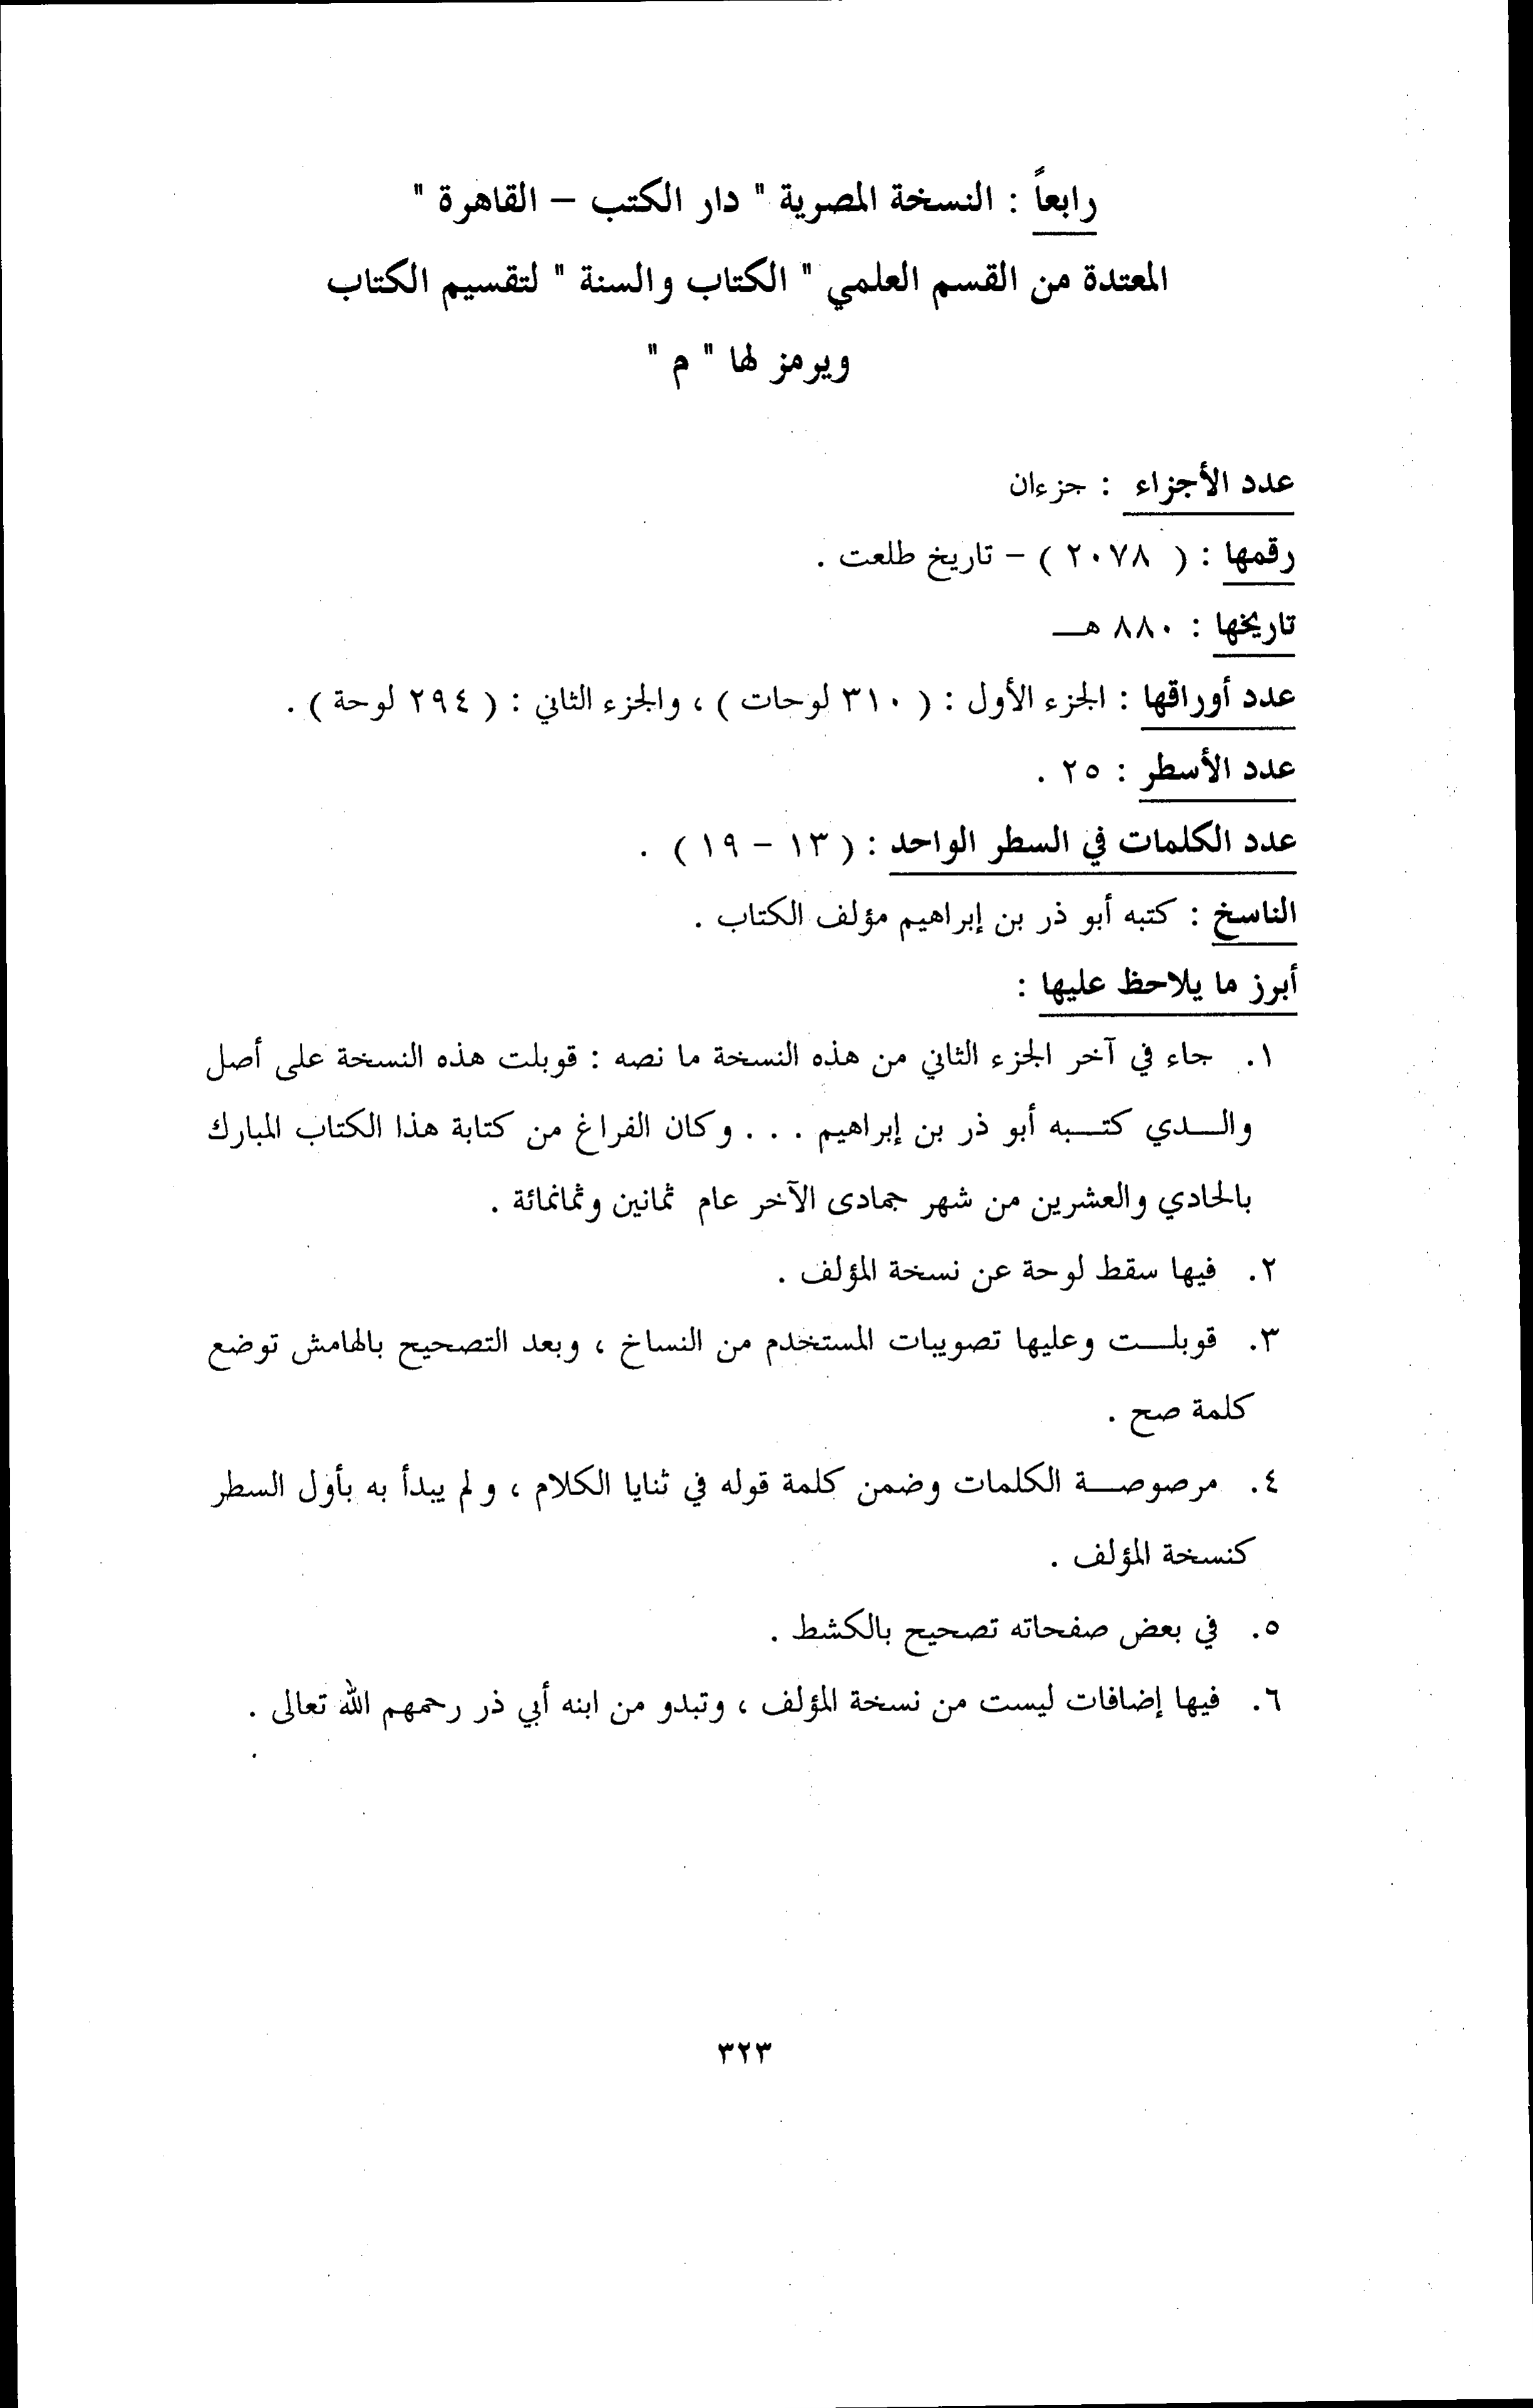 رابعاً : النسخة المصرية " دار الكتب – القاهرة "
المعتدة من القسم العلمي " الكتاب والسنة " لتقسيم الكتاب
ويرمز لها " م "
عدد الأجزاء : جزءان
رقمها : ( ٢٠٧٨ ) – تاريخ طلعت .
تاريخها : ٨٨٠ هـ
عدد أوراقها : الجزء الأول : ( ٣١٠ لوحات ) ، والجزء الثاني : ( ٢٩٤ لوحة ) .
عدد الأسطر : ٢٥ .
عدد الكلمات في السطر الواحد : ( ١٣ – ١٩ ) .
الناسخ : كتبه أبو ذر بن إبراهيم مؤلف الكتاب .
أبرز ما يلاحظ عليها :
١. جاء في آخر الجزء الثاني من هذه النسخة ما نصه : قوبلت هذه النسخة على أصل
والـدي كتـبه أبو ذر بن إبراهيم . . . وكان الفراغ من كتابة هذا الكتاب المبارك
بالحادي والعشرين من شهر جمادى الآخر عام ثمانين وثمانمائة .
٢. فيها سقط لوحة عن نسخة المؤلف .
٣. قوبلـت وعليها تصويبات المستخدم من النساخ ، وبعد التصحيح بالهامش توضع
كلمة صح .
٤. مرصوصـة الكلمات وضمن كلمة قوله في ثنايا الكلام ، ولم يبدأ به بأول السطر
كنسخة المؤلف .
٥. في بعض صفحاته تصحيح بالكشط .
٦. فيها إضافات ليست من نسخة المؤلف ، وتبدو من ابنه أبي ذر رحمهم الله تعالى .
٣٢٣